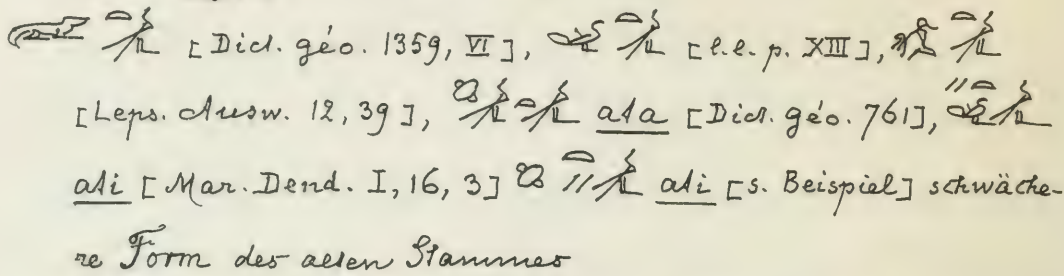 [Dict. géo. 1359, VI], [l.l. p. XIII],
[Leps. Ausw. 12, 39], ata [Dict. géo. 761],
ati [Mar. Dend. I, 16, 3] ati [s. Beispiel] schwäche-
re Form des alten Stammes